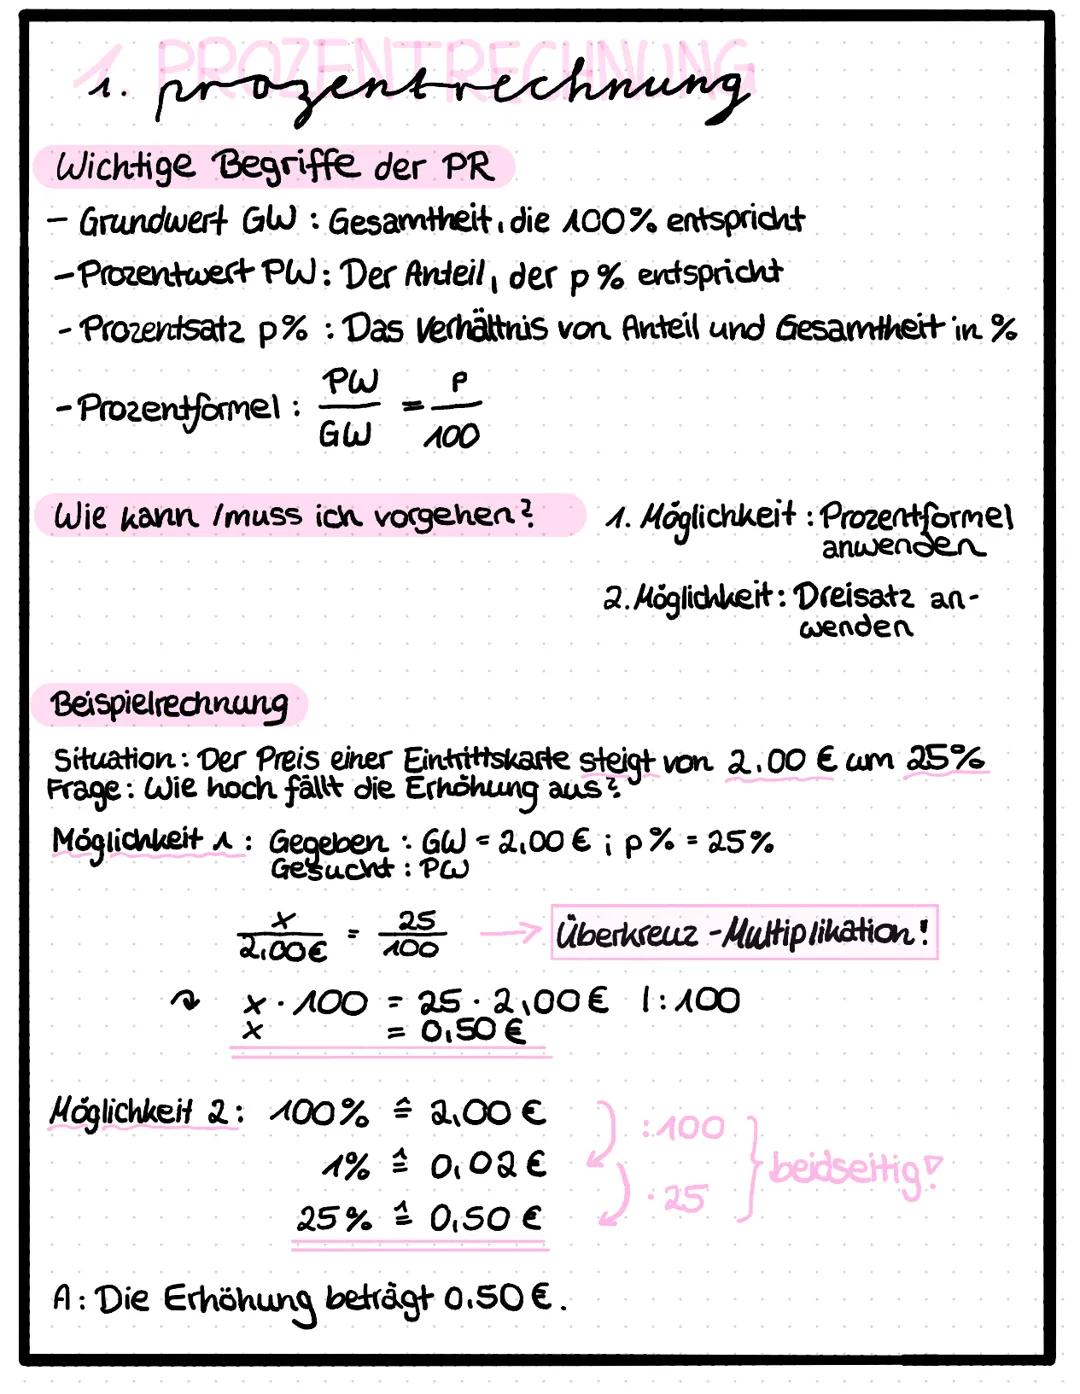 1. PROZENTRECHNUNG
1. prozentrechnung
Wichtige Begriffe der PR
- Grundwert GW : Gesamtheit, die 100% entspricht
- Prozentwert PW : Der Anteil, der p% entspricht
- Prozentsatz p% : Das Verhältnis von Anteil und Gesamtheit in %
- Prozentformel : PW/GW = P/100
Wie kann /muss ich vorgehen?
1. Möglichkeit : Prozentformel
anwenden
2. Möglichkeit : Dreisatz an-
wenden
Beispielrechnung
Situation : Der Preis einer Eintrittskarte steigt von 2,00 € um 25%
Frage : Wie hoch fällt die Erhöhung aus?
Möglichkeit 1 : Gegeben : GW = 2,00 € ; p% = 25%
Gesucht : PW
x/2,00€ = 25/100 → Überkreuz-Multiplikation!
↷ x · 100 = 25 · 2,00 € |:100
x = 0,50 €
Möglichkeit 2 : 100% ≙ 2,00 €
:100
1% ≙ 0,02 €
beidseitig!
· 25
25% ≙ 0,50 €
A : Die Erhöhung beträgt 0.50 €.